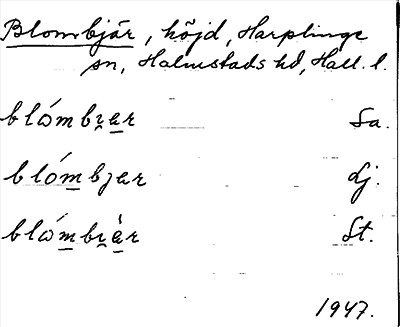 Blombjär, höjd, Harplinge
sn, Halmstads hd, Hall. l.
blómbi̯ar Sa.
blómbjar Lj.
blómbi̯àr St.
1947.